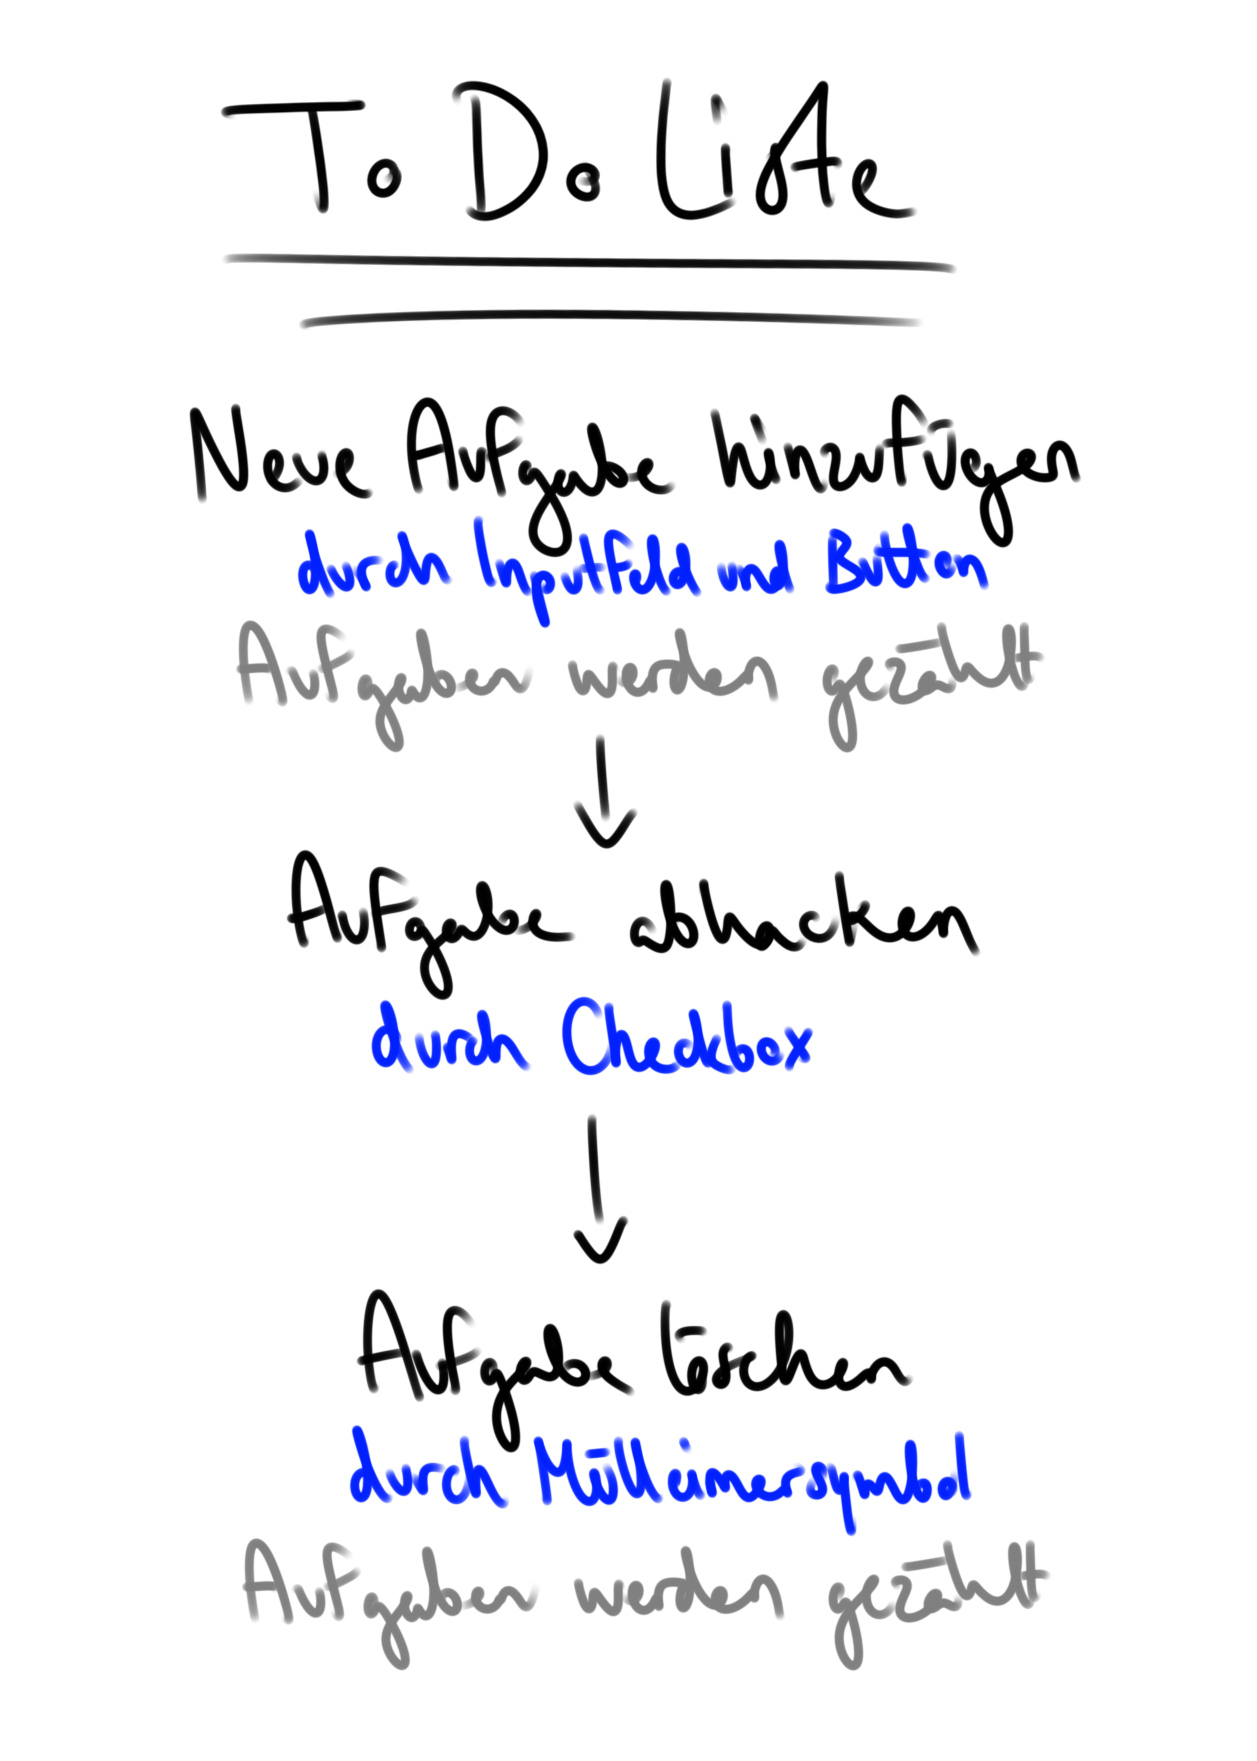 To Do Liste
Neue Aufgabe hinzufügen
durch Inputfeld und Button
Aufgaben werden gezählt
Aufgabe abhacken
durch Checkbox
Aufgabe löschen
durch Mülleimersymbol
Aufgaben werden gezählt